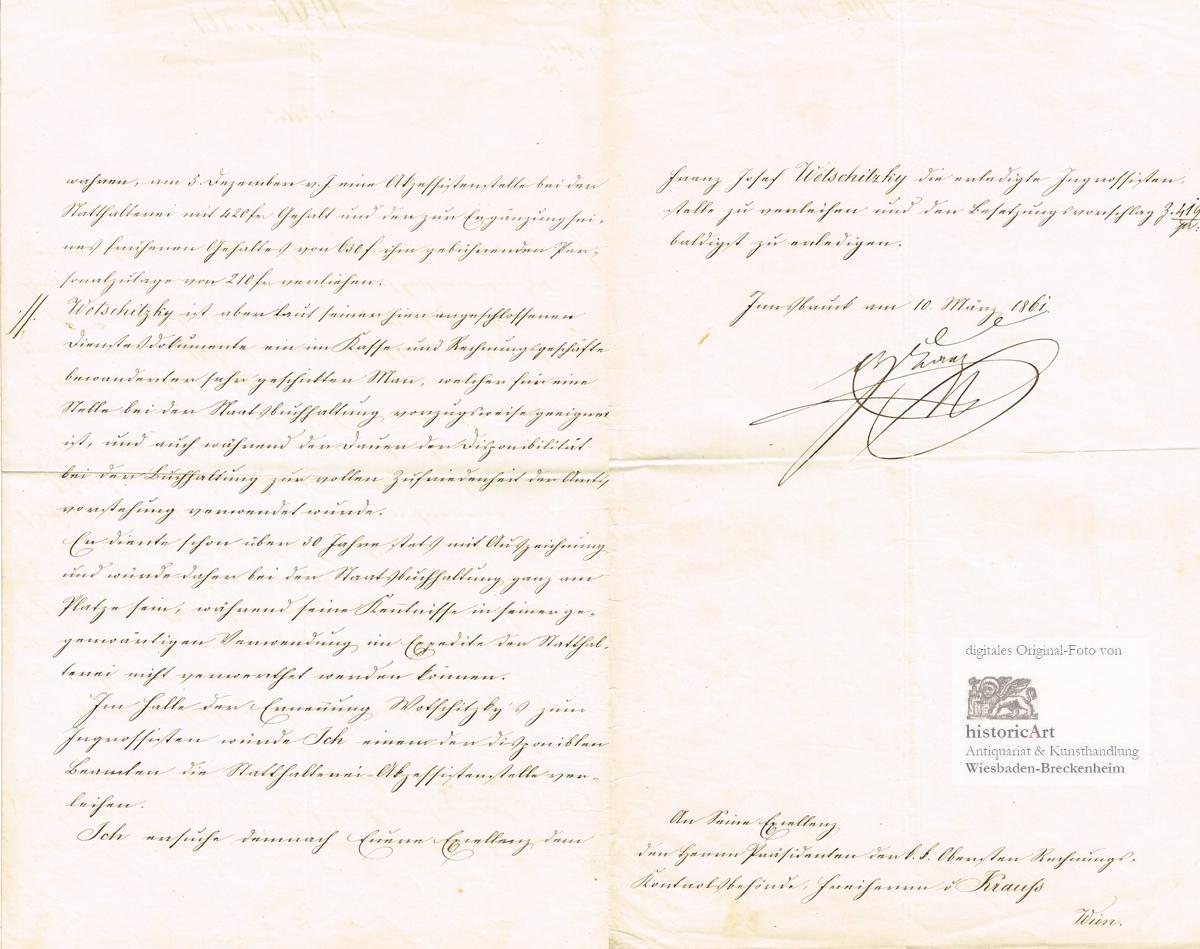 wahren, am 5. Dezember v. J eine Akzessistenstelle bei der
Statthalterei mit 420 fr Gehalt und der zur Ergänzung sei-
nes früheren Gehaltes von 630 f. ihm gebührenden Per-
sonalzulage von 210 fr verliehen.
Wotschitzky ist aber laut seiner hier angeschlossenen
Dienstesdokumente ein im Kasse- und Rechnungsgeschäfte
bewanderter sehr geschickter Man, welcher für eine
Stelle bei der Staatsbuchhaltung vorzugsweise geeignet
ist, und auch während der Dauer der Disponibilität
bei der Buchhaltung zur vollen Zufriedenheit der Amts,
vorstehung verwendet wurde.
Er diente schon über 30 Jahre stets mit Auszeichnung
und würde daher bei der Staatsbuchhaltung ganz am
Platze sein, während seine Kentnisse in seiner ge-
genwärtigen Verwendung im Expedite der Statthal-
terei nicht verwerthet werden können.
Im Falle der Ernenung Wotschitzky's zum
Ingrossisten würde Ich einem der disponiblen
Beamten die Statthalterei-Akzessistenstelle ver-
leihen.
Ich ersuche demnach Euere Exellenz dem
Franz Josef Wotschitzky die erledigte Ingrossisten-
stelle zu verleihen und den Besetzungsvorschlag Z.
baldigst zu erledigen.
Innsbruck am 10. März 1861
An Seine Exellenz
den Herrn Präsidenten der k. k. Obersten Rechnungs-
Kontrolsbehörde, Freiherrn v Krauß
Wien.
digitales Original-Foto von
historicArt
Antiquariat & Kunsthandlung
Wiesbaden-Breckenheim